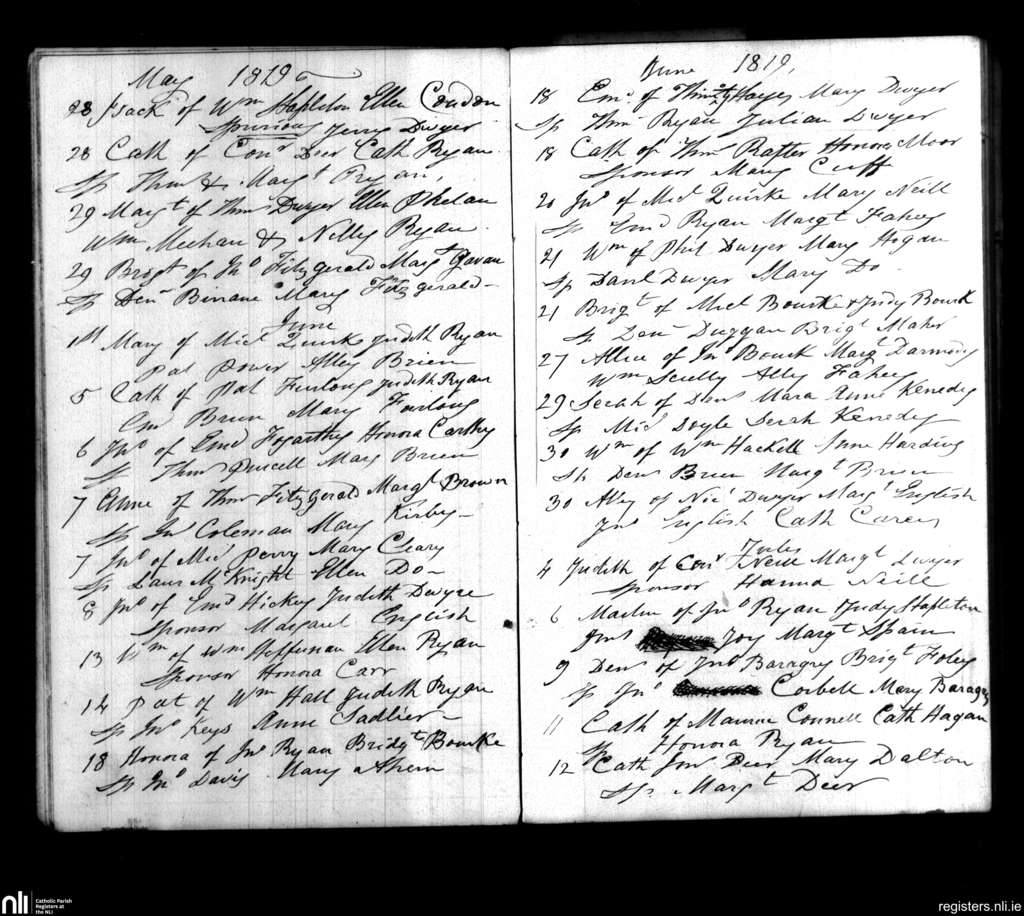 May 1819
28 Isack of Wm Stapleton Ellen Condon
Spurious Terry Dwyer
28 Cath of Conr Deer Cath Ryan
Sp Thms & Margt Ryan
29 Margt of Thms Dwyer Ellen Phelan
Wm Meehan & Nelly Ryan
29 Brigt of Jno Fitzgerald Margt Gavan
Sp Denn Binane Mary Fitzgerald
June
1st Mary of Micl Quirk Judith Ryan
Pat Power Alley Brien
5 Cath of Pat Furlong Judith Ryan
Brien Mary Furlong
6 Jno of Emd Fogarthy Honora Carthy
Sp Thms Purcell Mary Brien
7 Anne of Thms Fitzgerald Margt Brown
Sp Jno Coleman Mary Kirby
7 Jno of Micl Perry Mary Cleary
Sp Laur McKnight Ellen Do
8 Jno of Emd Hickey Judith Dwyre
Sponsor Margaret English
13 Wm of Wm Heffernan Ellen Ryan
Sponsor Honora Carr
14 Pat of Wm Hall Judith Ryan
Sp Jno Keys Anne Sadlier
18 Honora of Jno Ryan Bridgt Bourke
Sp Jno Davis Mary Ahern
June 1819,
18 Emd of Timoty Hayes Mary Dwyer
Sp Thms Ryan Julian Dwyer
18 Cath of Thms Rafter Honora Moor
Sponsor Mary Cuff
20 Jno of Micl Quirke Mary Neill
Sp Emd Ryan Margt Fahey
21 Wm of Phil Dwyer Mary Hogan
Sp Danl Dwyer Mary Do
21 Brigt of Micl Bourke & Judy Bourk
Sp Denn Duggan Brigt Maher
27 Allice of Jno Bourk Margt Darmody
Wm Scully Ally Fahey
29 Serah of Denn Mara Anne Kenedy
Sp Micl Doyle Serah Kenedy
30 Wm of Wm Hackett Anne Harding
Sp Denn Brien Margt Brien
30 Alley of Nicl Dwyer Margt English
Jno English Cath Carey
July
4 Judith of Conr Neill Margt Dwyer
Sponsor Hanna Neill
6 Martin of Jno Ryan Judy Stapleton
Jms Joy Margt Spain
9 Denn of Jno Baragry Brigt Foley
Sp Jno Corbett Mary Baragry
11 Cath of Maurice Connell Cath Hagan
Sp Honora Ryan
12 Cath Jno Deer Mary Dalton
Sp Margt Deer
nli
Catholic Parish
Registers at
the NLI
registers.nli.ie